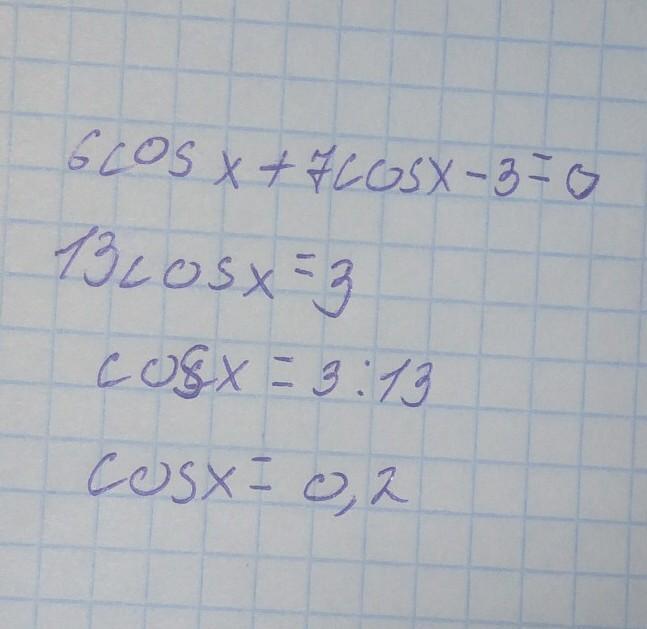 6cos x + 7cosx - 3 = 0
13cosx = 3
cosx = 3 : 13
cosx = 0,2